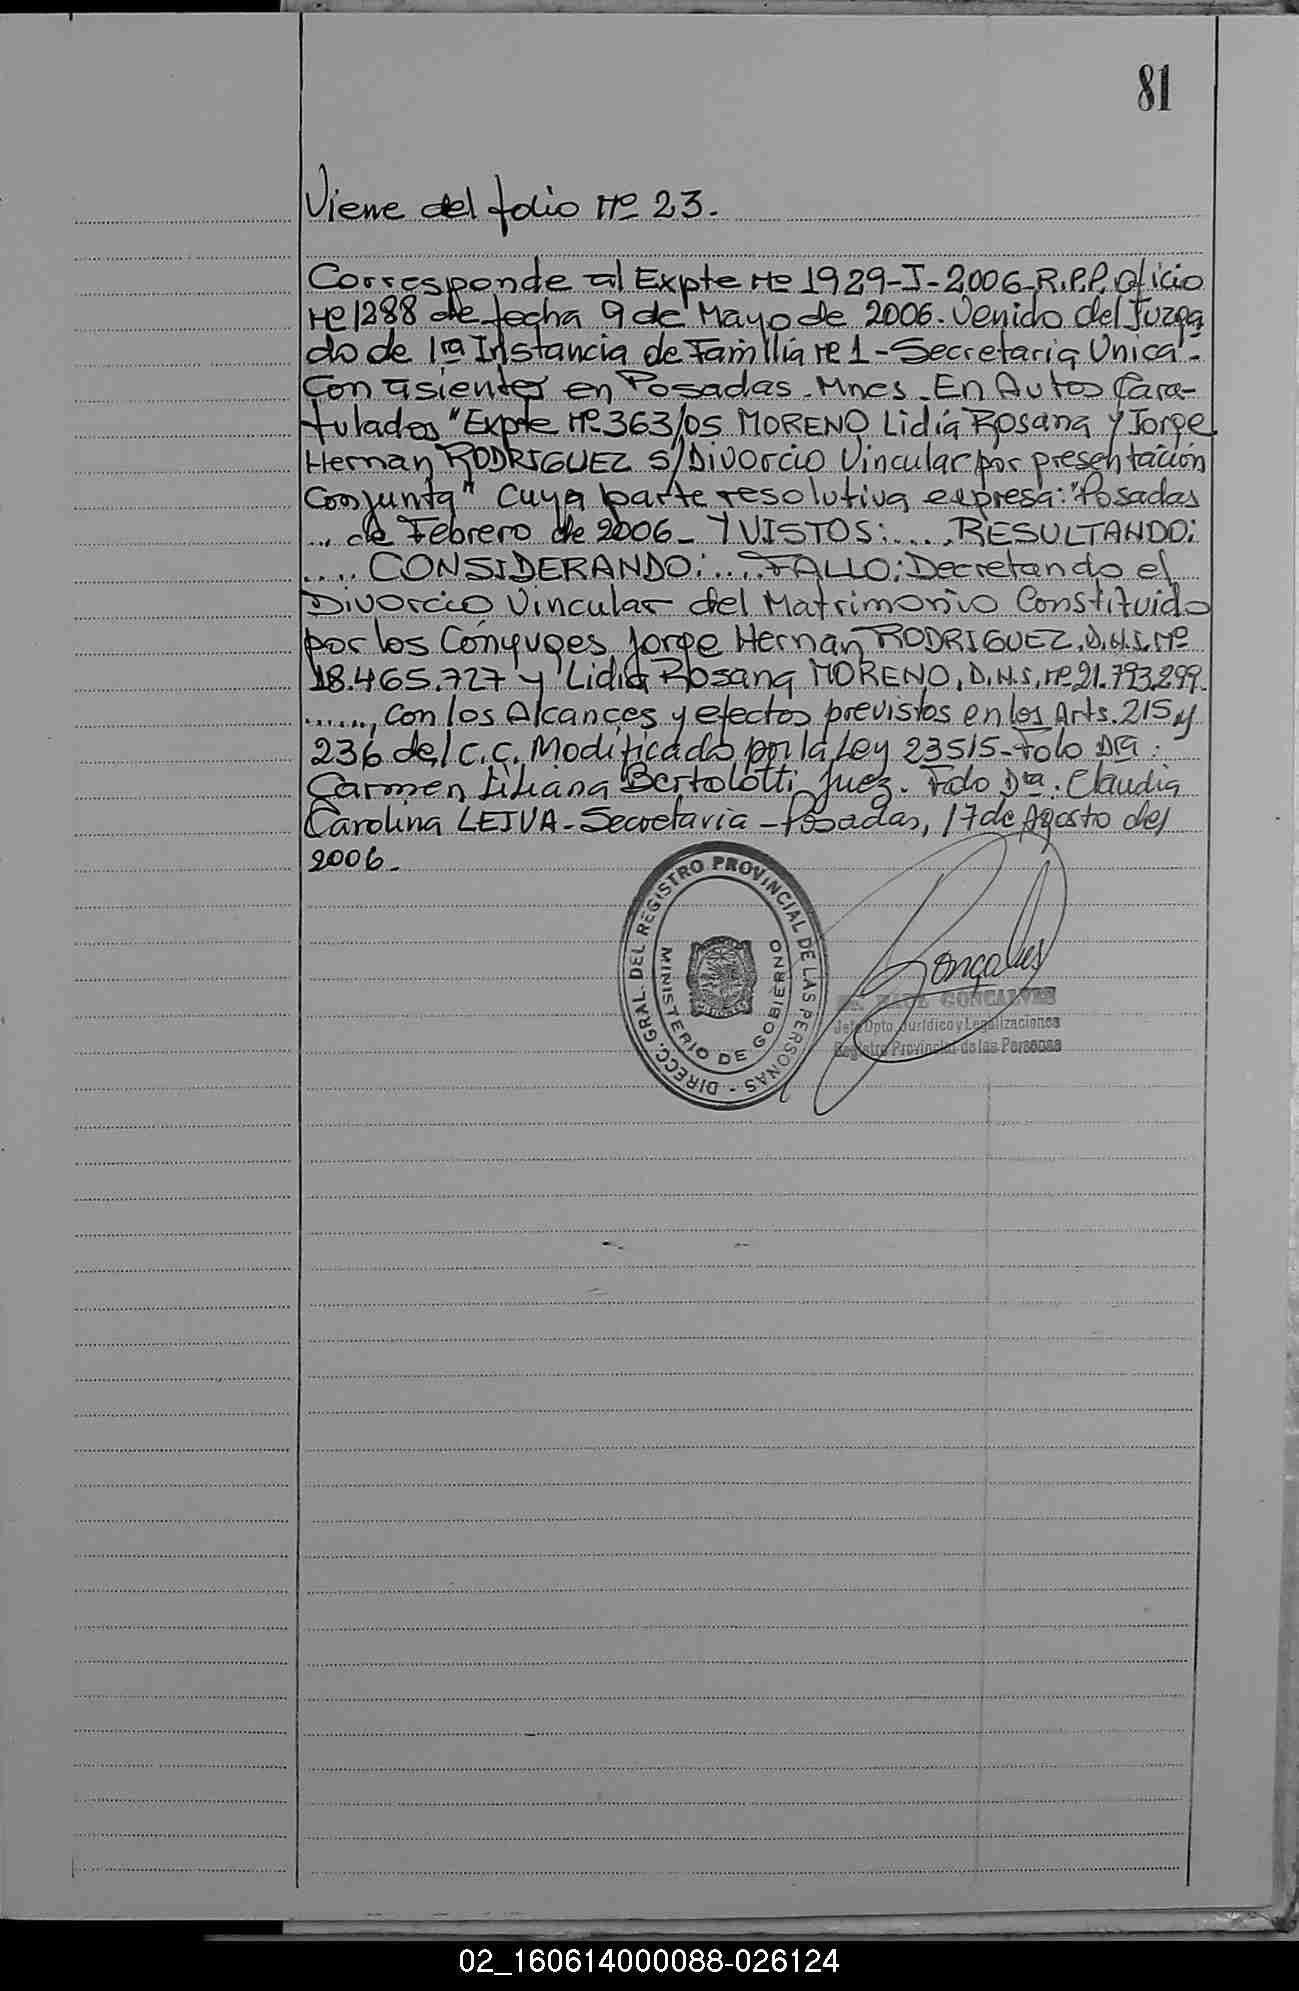 81
Viene del folio Nº 23.
Corresponde al Expte Nº 1929-J-2006-R.P.P. Oficio
Nº 1288 de fecha 9 de Mayo de 2006. Venido del Juzga
do de 1ra Instancia de Familia Nº 1 - Secretaria Unica -
Con asientos en Posadas - Mnes - En Autos Cara-
tulados "Expte Nº 363/05 MORENO Lidia Rosana y Jorge
Hernan RODRIGUEZ S/Divorcio Vincular por presentación
Conjunta" Cuya parte resolutiva expresa: "Posadas
... de Febrero de 2006 - Y VISTOS: .... RESULTANDO:
.... CONSIDERANDO: .... FALLO: Decretando el
Divorcio Vincular del Matrimonio Constituido
por los Cónyuges Jorge Hernan RODRIGUEZ, D.N.I. Nº
18.465.727 y Lidia Rosana MORENO, D.N.I. Nº 21.793.299.
......., Con los Alcances y efectos previstos en los Arts. 215 y
236 del C.C. Modificado por la Ley 23515 - Fdo Dra.
Carmen Liliana Bertolotti Juez. Fdo Dra. Claudia
Carolina LEIVA - Secretaria - Posadas, 17 de Agosto del
2006 -
DIRECC. GRAL. DEL REGISTRO PROVINCIAL DE LAS PERSONAS -
MINISTERIO DE GOBIERNO
Gonçalves
GONCALVES
Jefe Dpto. Jurídico y Legalizaciones
Registro Provincial de las Personas
02_160614000088-026124